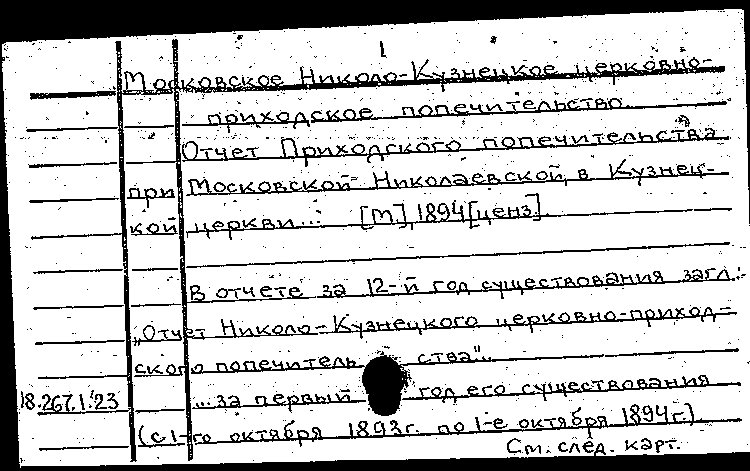 1
Московское Николо-Кузнецкое церковно-
приходское попечительство
Отчет Приходского попечительства
при Московской Николаевской, в Кузнец-
кой церкви... [М], 1894 [ценз].
В отчете за 12-й год существования загл.:-
„Отчет Николо-Кузнецкого церковно-приход-
ского попечительства".
18.267.1.23 ...за первый год его существования
(с 1-го октября 1893г. по 1-е октября 1894г.)
См. след. карт.